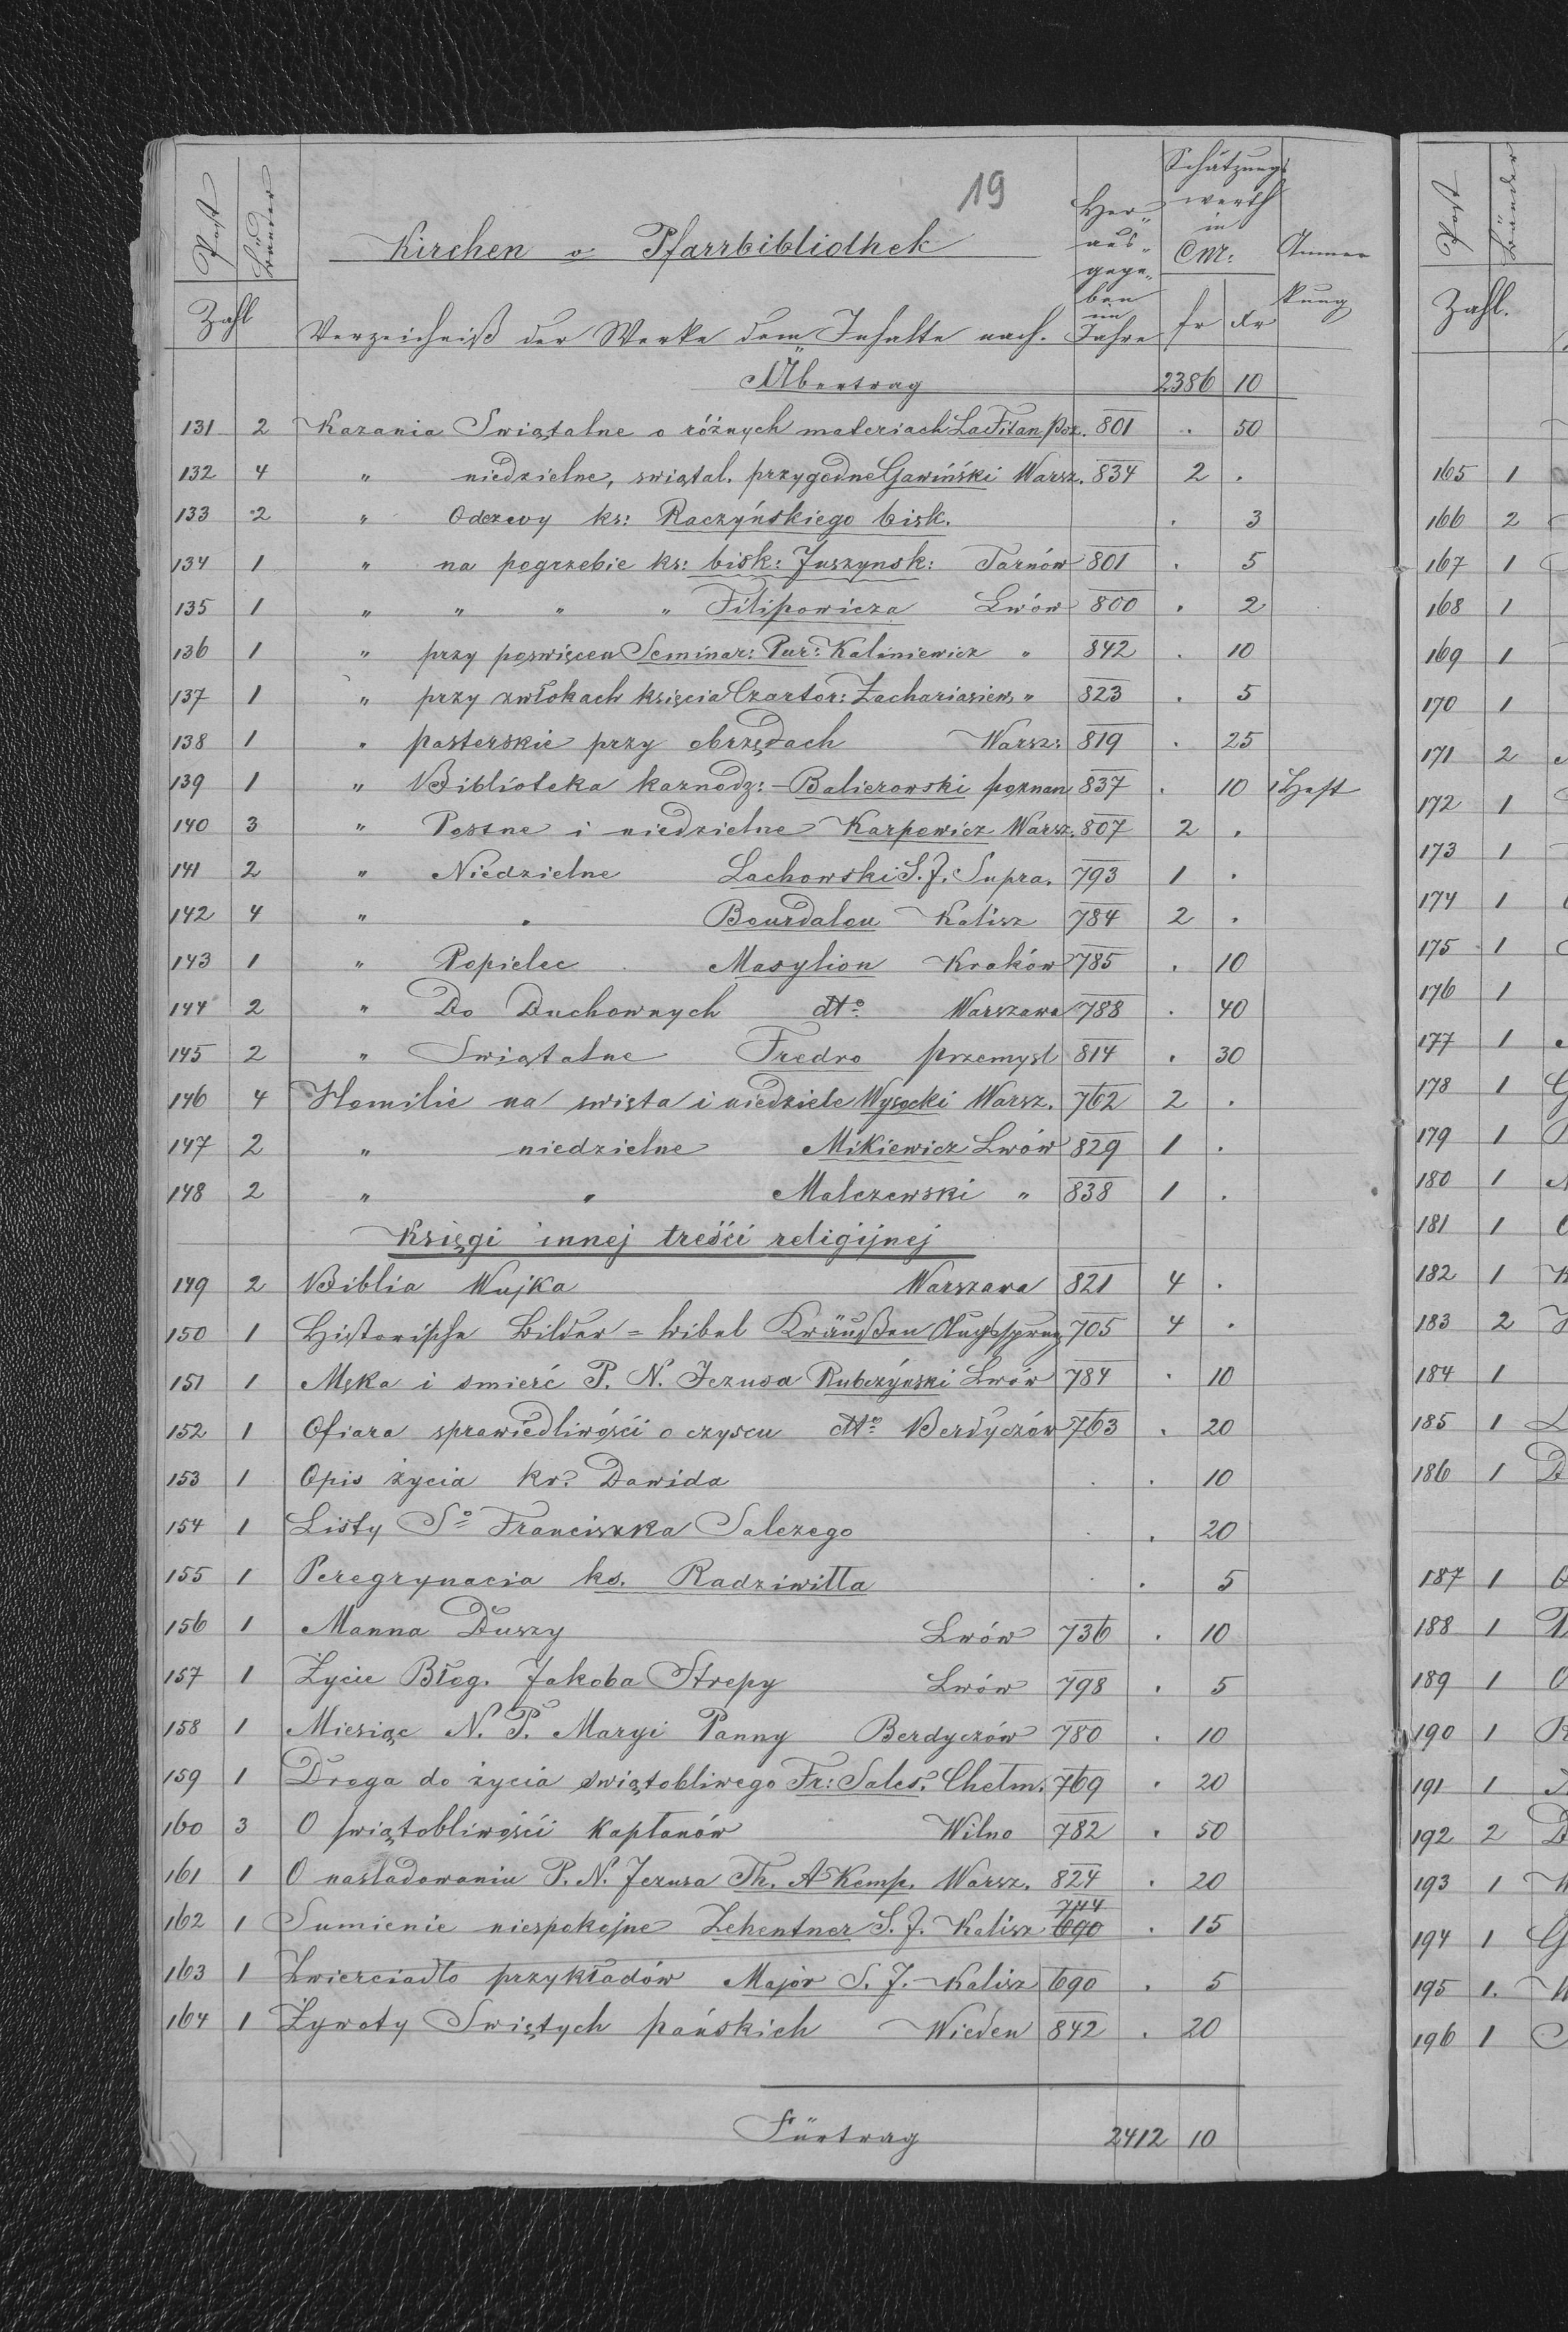 19
Kirchen o Pfarrbibliothek
Post Bänder Zahl
Verzeichniß der Werke dem Inhalte nach.
Her- aus- gege- ben im Jahre
Schätzungs werth in CM: fr Xr
Anmer kung
Übertrag 2386 10
131 2 Kazania Swiątalne o różnych materiach LaFitan Poz. 801 . 50
132 4 " niedzielne, swiątal. przygodne Gawiński Warsz. 834 2 .
133 2 " Odezwy ks: Raczyńskiego bisk. . 3
134 1 " na pogrzebie ks: bisk: Juszynsk: Tarnów 801 . 5
135 1 " " " " Filipowicza Lwów 800 . 2
136 1 " przy poswięcen Seminar: Pur: Kaliniewicz " 842 . 10
137 1 " przy zwłokach księcia Czartor: Zachariasiew. " 823 . 5
138 1 " pasterskie przy obrzędach Warsz: 819 . 25
139 1 " Biblioteka kaznodz: - Balicrowski poznan 837 . 10 1 Heft
140 3 " Postne i niedzielne Karpowicz Warsz. 807 2 .
141 2 " Niedzielne Lachowski S. J. Supra. 793 1 .
142 4 " " Bourdalou Kalisz 784 2 .
143 1 " Popielec Masylion Kraków 785 . 10
144 2 " Do Duchownych dto Warszawa 788 . 40
145 2 " Swiątalne Fredro przemysl 814 . 30
146 4 Homilie na swięta i niedziele Wysocki Warsz. 762 2 .
147 2 " niedzielne Mikiewicz Lwów 829 1 .
148 2 " " Malczewski " 838 1 .
Księgi innej treści religijnej
149 2 Biblia Wujka Warszawa 821 4 .
150 1 Historische Bilder = bibel Kräußen Augsspurg 705 4 .
151 1 Męka i smierć P. N. Jezusa Rubczyński Lwów 784 . 10
152 1 Ofiara sprawiedliwości o czyscu dto Berdyczów 763 . 20
153 1 Opis życia kr. Dawida . . 10
154 1 Listy So Franciszka Salezego . . 20
155 1 Peregrynacia ks. Radziwitta . . 5
156 1 Manna Duszy Lwów 736 . 10
157 1 Życie Błog. Jakoba Strepy Lwów 798 . 5
158 1 Miesiąc N. P. Maryi Panny Berdyczów 780 . 10
159 1 Droga do życia swiątobliwego Fr: Sales. Chetm. 769 . 20
160 3 O swiątobliwości kapłanów Wilno 782 . 50
161 1 O nasladowaniu P. N. Jezusa Th. A Kemp. Warsz. 824 . 20
162 1 Sumienie niespokojne Zehentner S. J. Kalisz 744 690 . 15
163 1 Zwierciadto przykładów Major S. J. Kalisz 690 . 5
164 1 Żywoty Swiętych pańskich Wieden 842 . 20
Fürtrag 2412 10
Post Bänder
Zahl.
165 1
166 2
167 1
168 1
169 1
170 1
171 2
172 1
173 1
174 1
175 1
176 1
177 1
178 1
179 1
180 1
181 1
182 1
183 2
184 1
185 1
186 1
187 1
188 1
189 1
190 1
191 1
192 2
193 1
194 1
195 1.
196 1